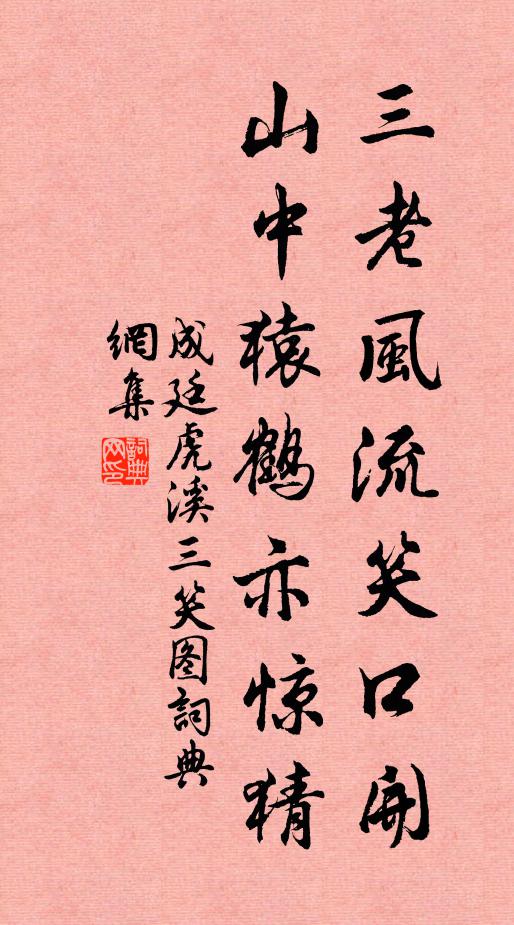 三老風流笑口開
山中猿鶴亦惊猜
成廷虎溪三笑图詞典
網集
詞典网印